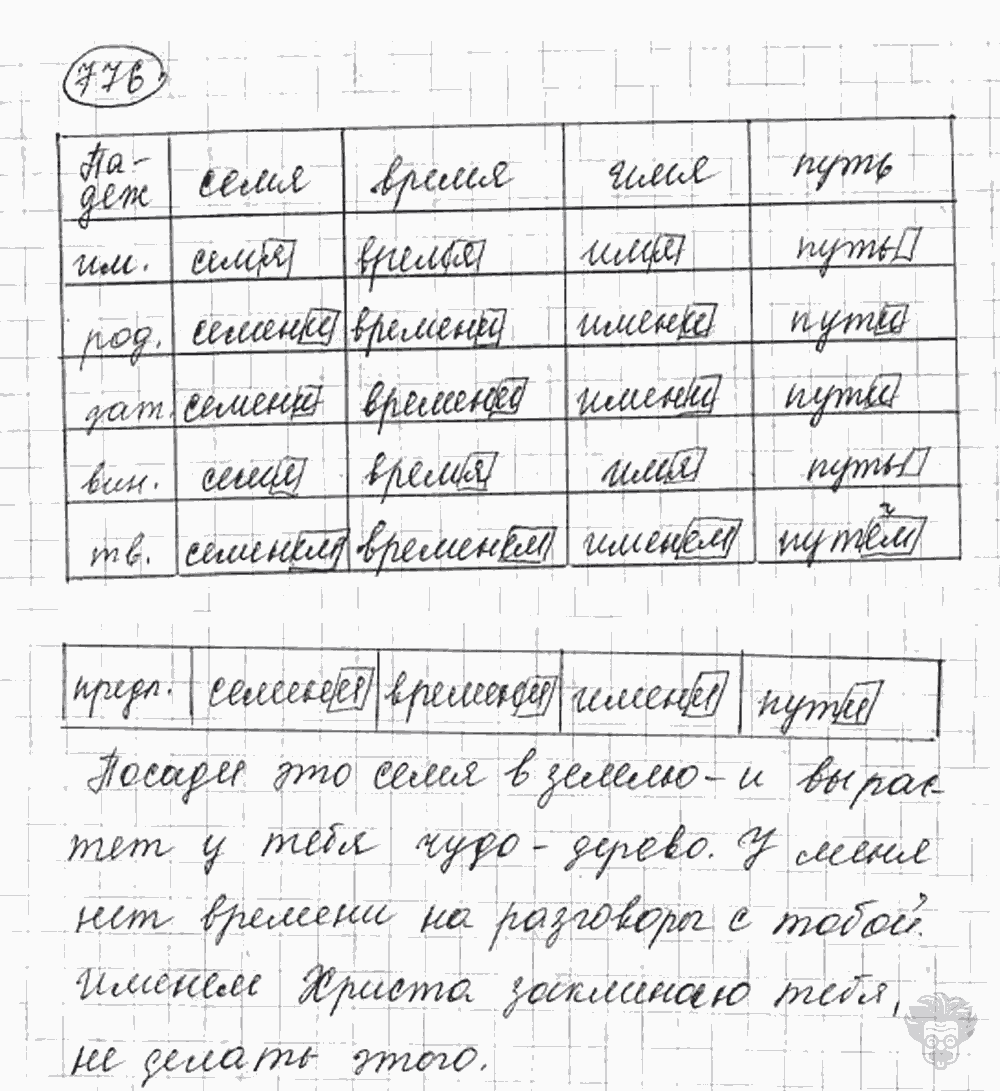 776.
Па-
деж семя время имя путь
им. семя время имя путь
род. семени времени имени пути
дат. семени времени имени пути
вин. семя время имя путь
тв. семенем временем именем путём
предл. семени времени имени пути
Посади это семя в землю - и вырас-
тет у тебя чудо - дерево. У меня
нет времени на разговоры с тобой.
Именем Христа заклинаю тебя,
не делать этого.